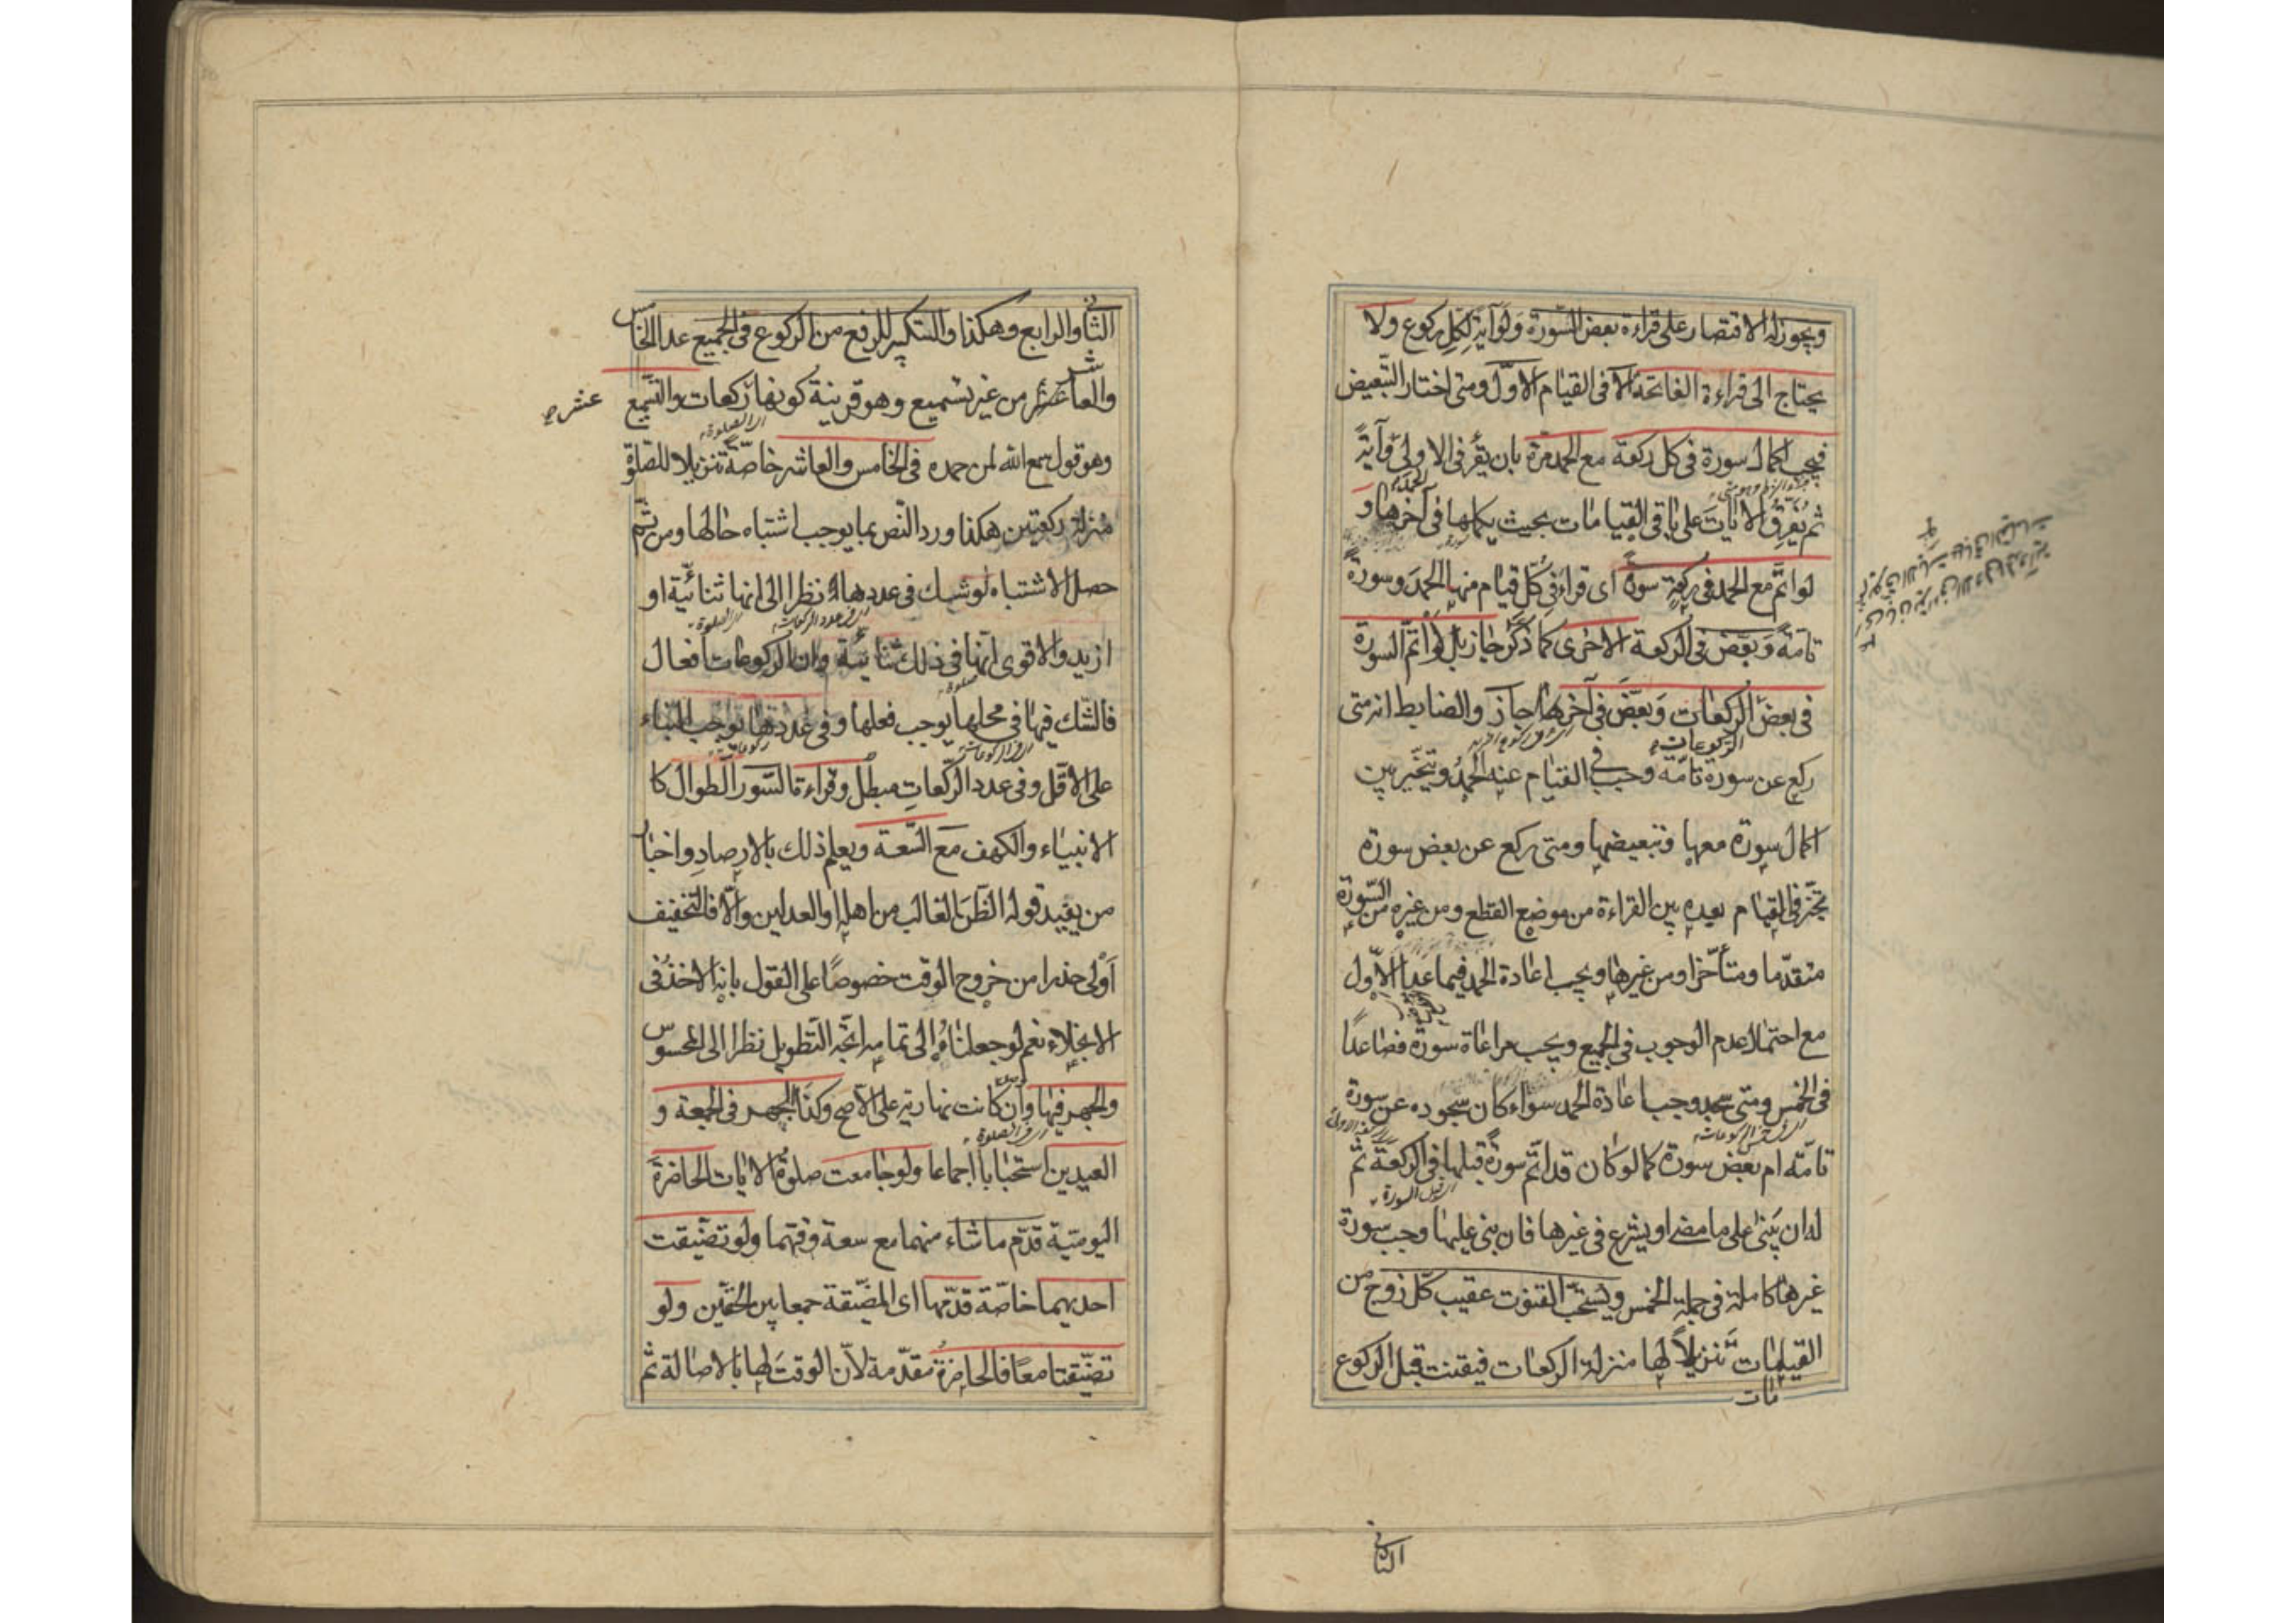 ويجوز له الاقتصار على قراءة بعض السورة ولو آية لكل ركوع ولا
يحتاج الى قراءة الفاتحة الا فى القيام الاول ومتى اختار التبعيض
فيجب اكمال سورة فى كل ركعة مع الحمد مرة بان يقرأ فى الاولى وآية
ثم يفرق الآيات على باقى القيامات بحيث يكملها فى آخرها و
لو اتم مع الحمد فى ركعة سورة اى قراء فى كل قيام منها الحمد وسورة
تامة وبعض فى الركعة الاخرى كما ذكر جاز بل لو اتم السورة
فى بعض الركعات وبعض فى آخرها جاز والضابط انه متى
الركوعات
ركع عن سورة تامة وجب فى القيام عنه الحمد ويتخير بين
اكمال سورة معها وتبعيضها ومتى ركع عن بعض سورة
تخير فى القيام بعده بين القراءة من موضع القطع ومن غيره من السورة
متقدما ومتأخرا ومن غيرها ويجب اعادة الحمد فيما عدا الاول
مع احتمال عدم الوجوب فى الجميع ويجب مراعاة سورة فصاعدا
فى الخمس ومتى سجد وجب اعادة الحمد سواء كان سجوده عن سورة
تامة ام بعض سورة كما لو كان قد اتم سورة قبلها فى الركعة ثم
اى قبل السورة
له ان يبنى على ما مضى او يشرع فى غيرها فان بنى عليها وجب سورة
غيرها كاملة فى جملة الخمس ويستحب القنوت عقيب كل زوج من
القيامات تنزيلا لها منزلة الركعات فيقنت قبل الركوع
مات
الثانى
الثانى والرابع وهكذا والتكبير للرفع من الركوع فى الجميع عدا الخامس
والعاشر من غير تسميع وهو قرينة كونها ركعات والتسميع
عشر
اى الصلوة
وهو قول سمع الله لمن حمده فى الخامس والعاشر خاصة تنزيلا للصلوة
منزلة ركعتين هكذا ورد النص بما يوجب اشتباه حالها ومن ثم
حصل الاشتباه لو شك فى عددها نظرا الى انها ثنائية او
اى فى عدد الركعات
اى الصلوة
ازيد والاقوى انها فى ذلك ثنائية وان الركوعات افعال
صلوة
فالشك فيها فى محلها يوجب فعلها وفى عددها يوجب البناء
ركوعات
على الاقل وفى عدد الركعات مبطل وقراءة السور الطوال كا
الانبياء والكهف مع السعة ويعلم ذلك بالارصاد واخبار
من يفيد قوله الظن الغالب من اهله او العدلين والا فالتخفيف
اولى حذرا من خروج الوقت خصوصا على القول بانه الاخذ فى
الانجلاء نعم لو جعلناه الى تمامه اتجه التطويل نظرا الى المحسوس
والجهر فيها وان كانت نهارية على الاصح وكذا الجهر فى الجمعة و
اى فى الصلوة
العيدين استحبابا اجماعا ولو جامعت صلوة الآيات الحاضرة
اليومية قدم ما شاء منهما مع سعة وقتهما ولو تضيقت
احديهما خاصة قدمها اى المضيقة جمعا بين الحقين ولو
تضيقتا معا فالحاضرة مقدمة لان الوقت لها بالاصالة ثم